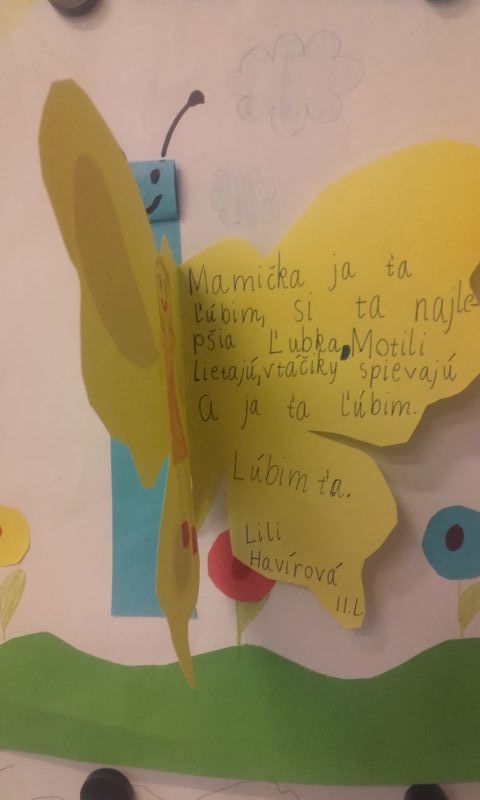 Mamička ja ťa
ľúbim, si ta najle-
pšia Ľubka, Motili
lietajú, vtáčiky spievajú
a ja ťa ľúbim.
Lúbim ťa.
Lili
Havírová
II.L